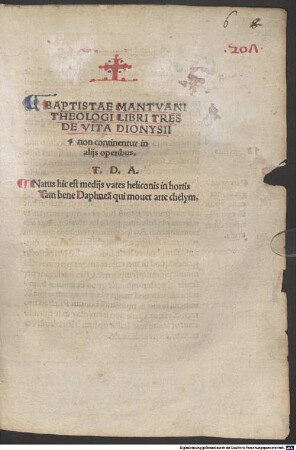 6
201
BAPTISTAE MANTVANI
THEOLOGI LIBRI TRES
DE VITA DIONYSII
non continentur in
alijs operibus.
T. D. A.
Natus hic est medijs vates heliconis in hortis
Tam bene Daphneā qui mouet arte chelym.